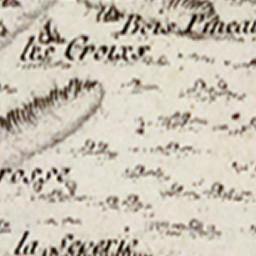 Bois Pineau
les Croixs
rosse
la Severie